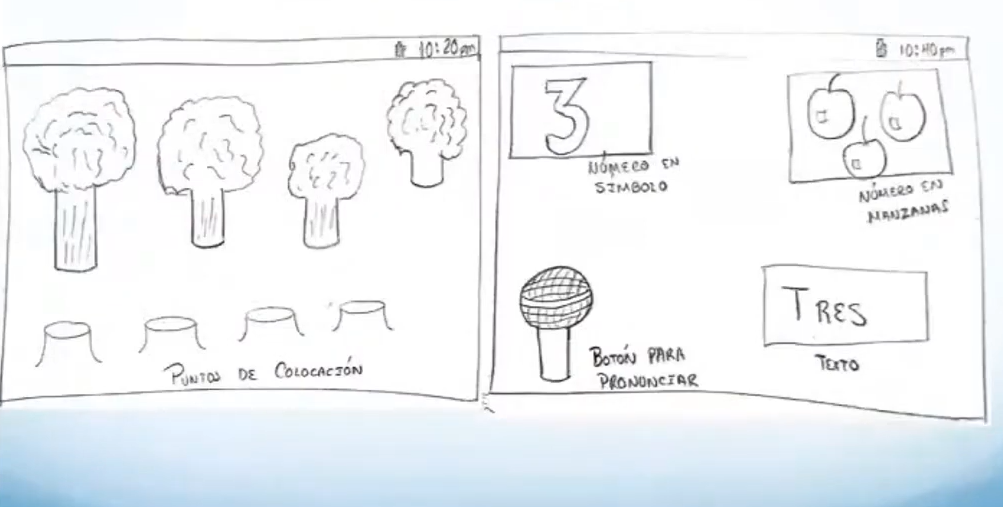 10:20pm
PUNTOS DE COLOCACIÓN
10:40pm
3
NÚMERO EN
SIMBOLO
NÚMERO EN
MANZANAS
BOTÓN PARA
PRONUNCIAR
TRES
TEXTO